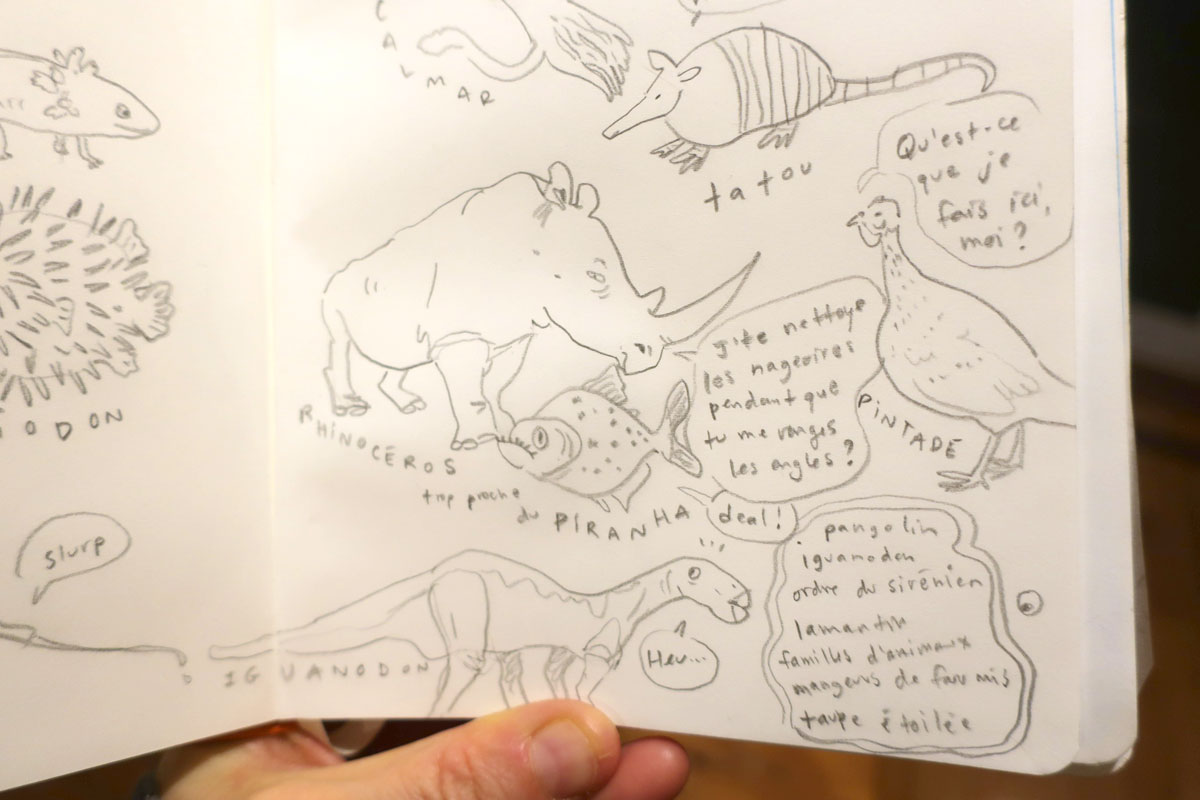 CALMAR
tatou
Qu'est-ce
que je
fais ici,
moi?
j'te nettoye
les nageoires
pendant que
tu me ronges
les ongles?
PINTADE
RHINOCÉROS
trop proche
du PIRANHA
deal!
IODON
slurp
IGUANODON
Heu...
pangolin
iguanodon
ordre du sirénien
lamantin
familles d'animaux
mangeurs de fourmis
taupe étoilée